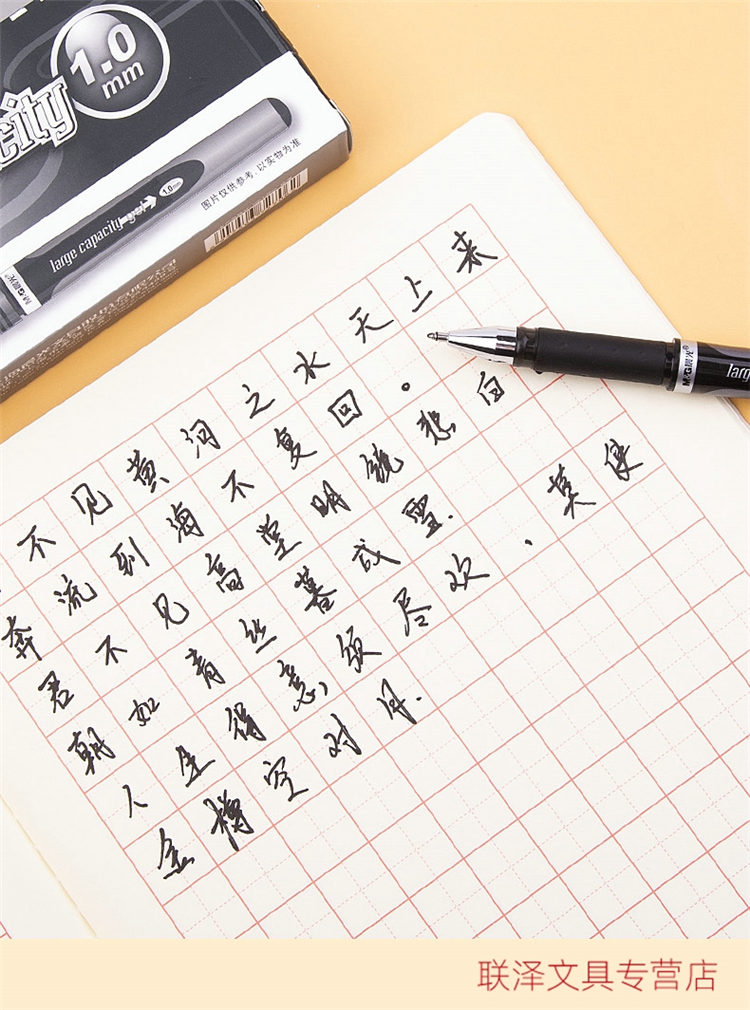 1.0
mm
city
large capacity gel
1.0mm
M&G晨光
图片仅供参考，以实物为准
不见黄河之水天上来
奔流到海不复回。
君不见高堂明镜悲白
朝如青丝暮成雪.
人生得意须尽欢，莫使
金樽空对月.
M&G晨光®
larg
联泽文具专营店